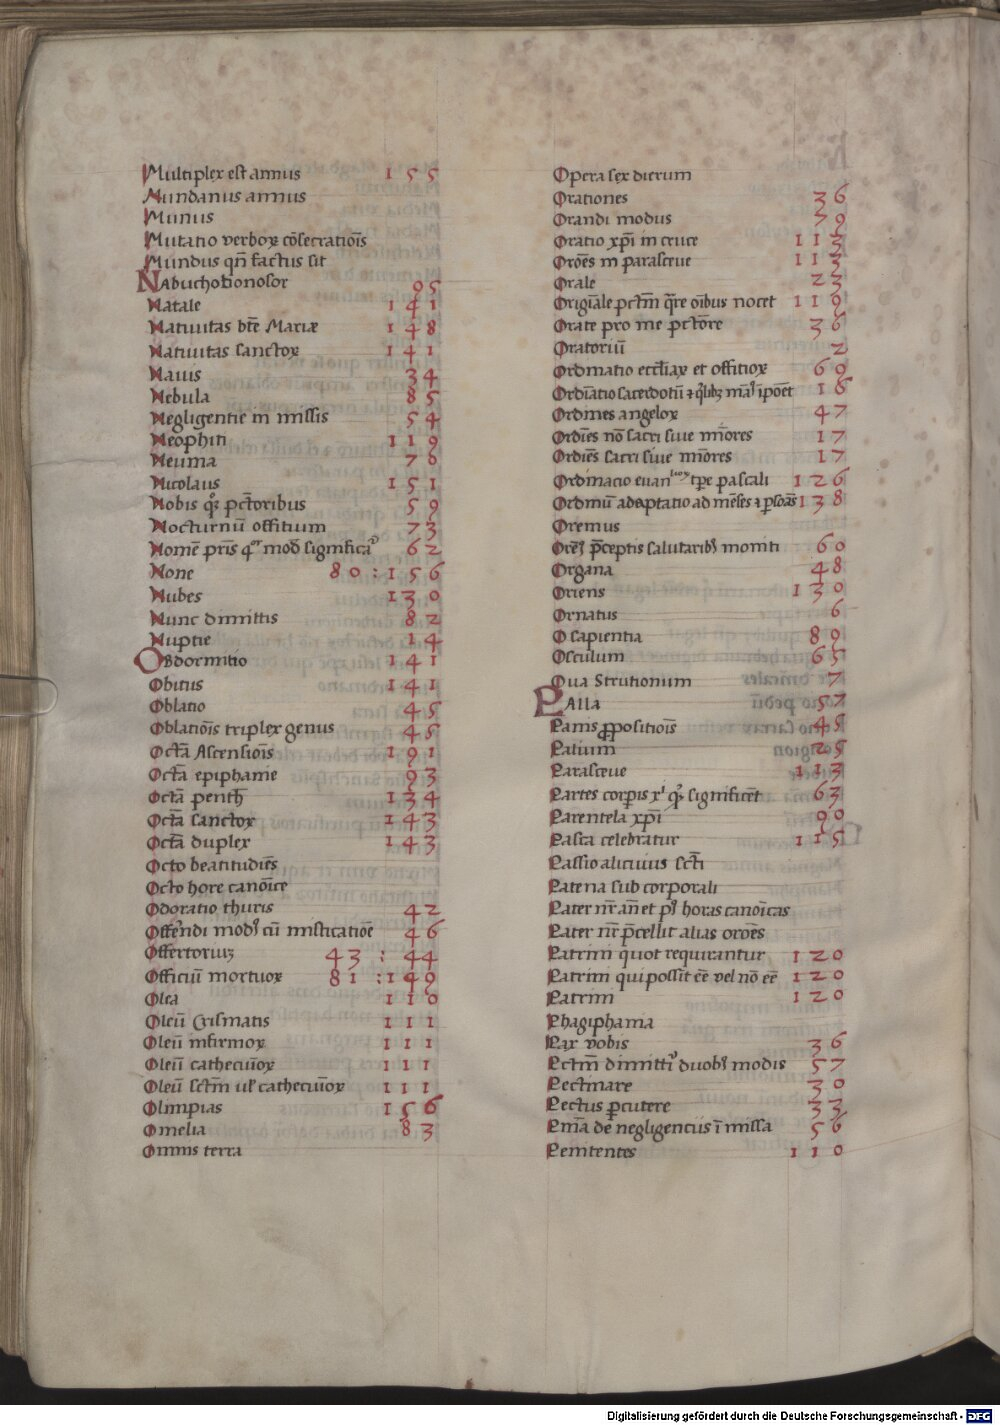 Multiplex est annus 155
Mundanus annus
Munus
Mutatio verboꝝ cõsecratiõis
Mundus qñ factus sit
Nabuchodonosor 95
Natale 141
Natiuitas bt̃e Mariæ 148
Natiuitas sanctoꝝ 141
Nauis 34
Nebula 85
Negligentie in missis 54
Neophiti 119
Neuma 78
Nicolaus 151
Nobis qͦꝫ pc̃toribus 59
Nocturnũ offitium 73
Nomẽ pr̃is qͦr modͦ significaͭ 62
None 80 : 156
Nubes 130
Nunc dimittis 82
Nuptie 14
Obdormitio 141
Obitus 141
Oblatio 45
Oblatiõis triplex genus 45
Octã Ascensiõis 191
Octã epiphanie 93
Octã penth̃ 134
Octã sanctoꝝ 143
Octã duplex 143
Octo beatitudiẽs
Octo hore canõice
Odoratio thuris 42
Offerẽndi modꝰ cũ misticatiõe 46
Offertoriuꝫ 43 : 44
Officiũ mortuoꝝ 81 : 149
Olea 110
Oleũ Crismatis 111
Oleũ infirmoꝝ 111
Oleũ cathecuĩoꝝ 111
Oleũ sctm̃ uꝉ cathecuĩoꝝ 111
Olimpias 156
Omelia 83
Omnis terra
Opera sex dierum
Orationes 36
Orandi modus 79
Oratio xp̃i in cruce 113
Orões in parasceue 113
Orale 23
Origiãle pctm̃ q̃re oĩbus nocet 119
Orate pro me pctõre 36
Oratoriũ 2
Ordinatio eccl̃iaꝝ et offitioꝝ 69
Ordiãtio sacerdotũ 16
Ordines angeloꝝ 47
Ordiẽs nõ sacri siue mĩores 17
Ordiẽs sacri siue mĩores 17
Ordinacio euanˡⁱᵒꝝ tp̃e pascali 126
Ordinũ adaptatio ad mẽses ꝛ p̱soãs 138
Oremus
Orẽꝰ p̃ceptis salutaribꝰ moniti 60
Organa 48
Oriens 130
Ornatus 6
O sapientia 89
Osculum 65
Oua Strutionum 7
Palla 57
Panis ꝓpositiõis 45
Palium 25
Parasceue 113
Partes corp̱is xͥ qͦꝫ significẽt 63
Parentela xp̃i 90
Pasca celebratur 115
Passio alicuius sctĩ
Patena sub corporali
Pater nr̃ añ et pꝰ horas canoĩcas
Pater nr̃ p̃cellit alias orões
Patrini quot requirantur 120
Patrini qui possit eẽ vel nõ eẽ 120
Patrini 120
Phagiphania
Pax vobis 36
Pectm̃ dimittiͭ duobꝰ modis 57
Pectinare 30
Pectus p̱cutere 33
Pemã de negligenciis ĩ missa 56
Penitentes 110
Digitalisierung gefördert durch die Deutsche Forschungsgemeinschaft - DFG